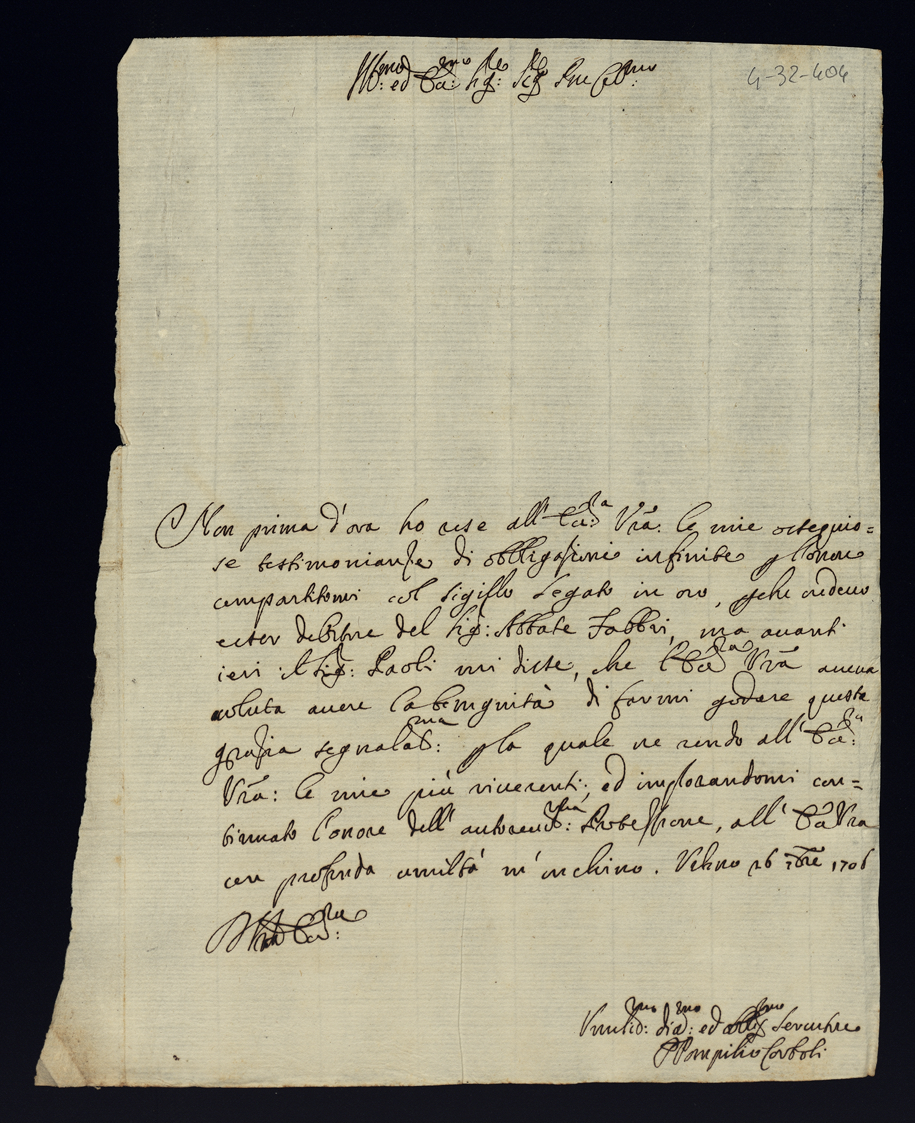 Ill:mo ed Ecc:mo Sig:re Sig:re Pne Col:mo
4-32-404
Non prima d'ora ho rese all' Ecc:za Vrã: le mie ossequio=
se testimonianze di obbligazioni infinite p l'onore
compartitomi col sigillo legato in oro, pche credeuo
esser debitore del Sig: Abbate Fabbri, ma auanti
ieri il Sig:r Paoli mi disse, che l'Ecc:za Vrã aueua
uoluta auere la benignità di farmi godere questa
grazia segnalat:ma p la quale ne rendo all' Ecc:za
Vrã: le mie più riuerenti; ed implorandomi con=
tinuato l'onore dell' autoreuol:ma Protezzione, all' Ecc:za Vra
con profonda umiltà m'inchino. Urbno 26 7bre 1706
D V Ecc:za
Umilis:mo Diu:mo ed Obblig:mo Seruitore
Pompilio Corboli